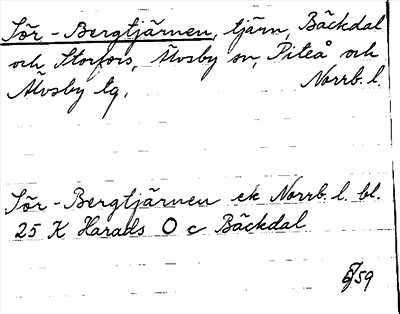 Sör-Bergtjärnen, tjärn, Bäckdal
och Storfors, Älvsby sn, Piteå och
Älvsby tg. Norrb. l.
Sör-Bergtjärnen ek Norrb. l. bl.
25 K Harads O c Bäckdal
/59